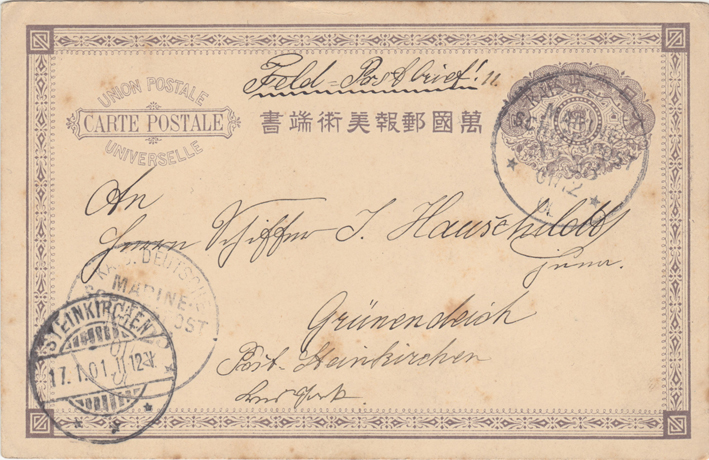 Feld-Postbrief!
UNION POSTALE
CARTE POSTALE
UNIVERSELLE
萬國郵報美術端書
MARINE
An
Herrn Schiffer J. Hauschildt
junr.
KAIS. DEUTSCHE
MARINE-
Grünendeich
STEINKIRCHEN
17.1.01.
Post-Steinkirchen